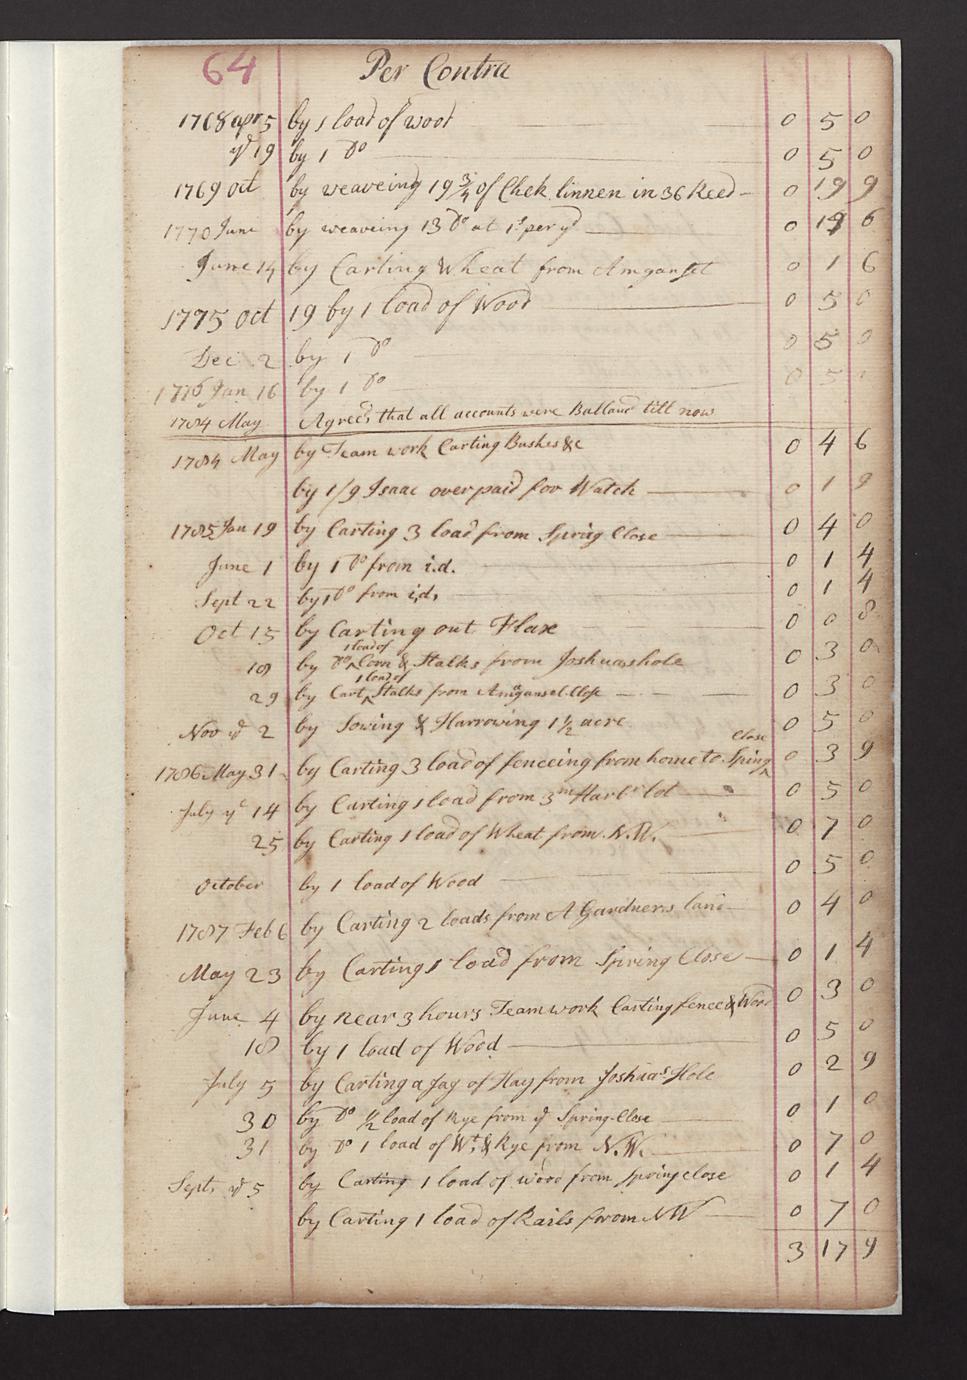 64 Per Contra
1768 apr 5 by 1 load of wood 0 5 0
yd 19 by 1 Do 0 5 0
1769 Oct by weaveing 19 3/4 of Chek linnen in 36 Reed 0 19 9
1770 June by weaveing 13 Do at 1s per yd 0 19 6
June 14 by Carting Wheat from Amganset 0 1 6
1775 Oct 19 by 1 load of Wood 0 5 0
Dec 2 by 1 Do 0 5 0
1776 Jan 16 by 1 Do 0 5
1784 May Agreed that all accounts were Balland till now
1784 May by Team work Carting Bushes &c 0 4 6
by 1/9 Isaac overpaid for Watch 0 1 9
1785 Jan 19 by Carting 3 load from Spring Close 0 4 0
June 1 by 1 Do from i.d. 0 1 4
Sept 22 by 1 Do from i,d, 0 1 4
Oct 15 by Carting out Flax 0 0 8
18 by Do 1 load of Corn & Stalks from Joshuashole 0 3 0
29 by Cart 1 load of Stalks from Amaganset Close 0 3 0
Nov yd 2 by Sowing & Harrowing 1 1/2 acre 0 5 0
1786 May 31 by Carting 3 load of fenceing from home to Spring Close 0 3 9
July ye 14 by Carting 1 load from 3m Harbr lot 0 5 0
25 by Carting 1 load of Wheat from N.W. 0 7 0
October by 1 load of Wood 0 5 0
1787 Feb 6 by Carting 2 loads from A Gardners land 0 4 0
May 23 by Carting 1 load from Spring Close 0 1 4
June 4 by near 3 hours Teamwork Carting fence & Wood 0 3 0
18 by 1 load of Wood 0 5 0
July 5 by Carting a Jag of Hay from Joshuas Hole 0 2 9
30 by Do 1/2 load of Rye from yd Spring-Close 0 1 0
31 by Do 1 load of Wt, & Rye from N.W. 0 7 0
Sept, yd 5 by Carting 1 load of wood from Spring close 0 1 4
by Carting 1 load of Rails from NW 0 7 0
3 17 9